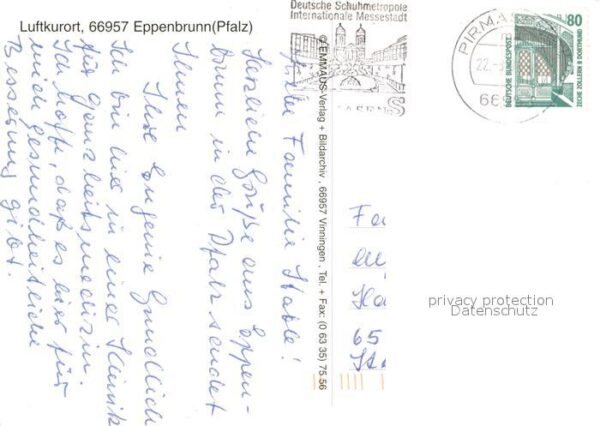 Luftkurort, 66957 Eppenbrunn(Pfalz)
Deutsche Schuhmetropole
Internationale Messestadt
PIRMAS
22.
66
80
DEUTSCHE BUNDESPOST
ZECHE ZOLLERN II DORTMUND
© EMMAUS-Verlag + Bildarchiv . 66957 Vinningen . Tel. + Fax: (0 63 35) 75 56
Familie
Herzliche Grüße aus Eppen-
brunn in der Pfalz sendet
Ihnen
Ihre Eugenie
Ich bin hier in einer Klinik
für Ganzheitsmedizin
Ich hoffe, daß es hier für
mich gesundheitliche
Besserung gibt.
Fa
65
privacy protection
Datenschutz